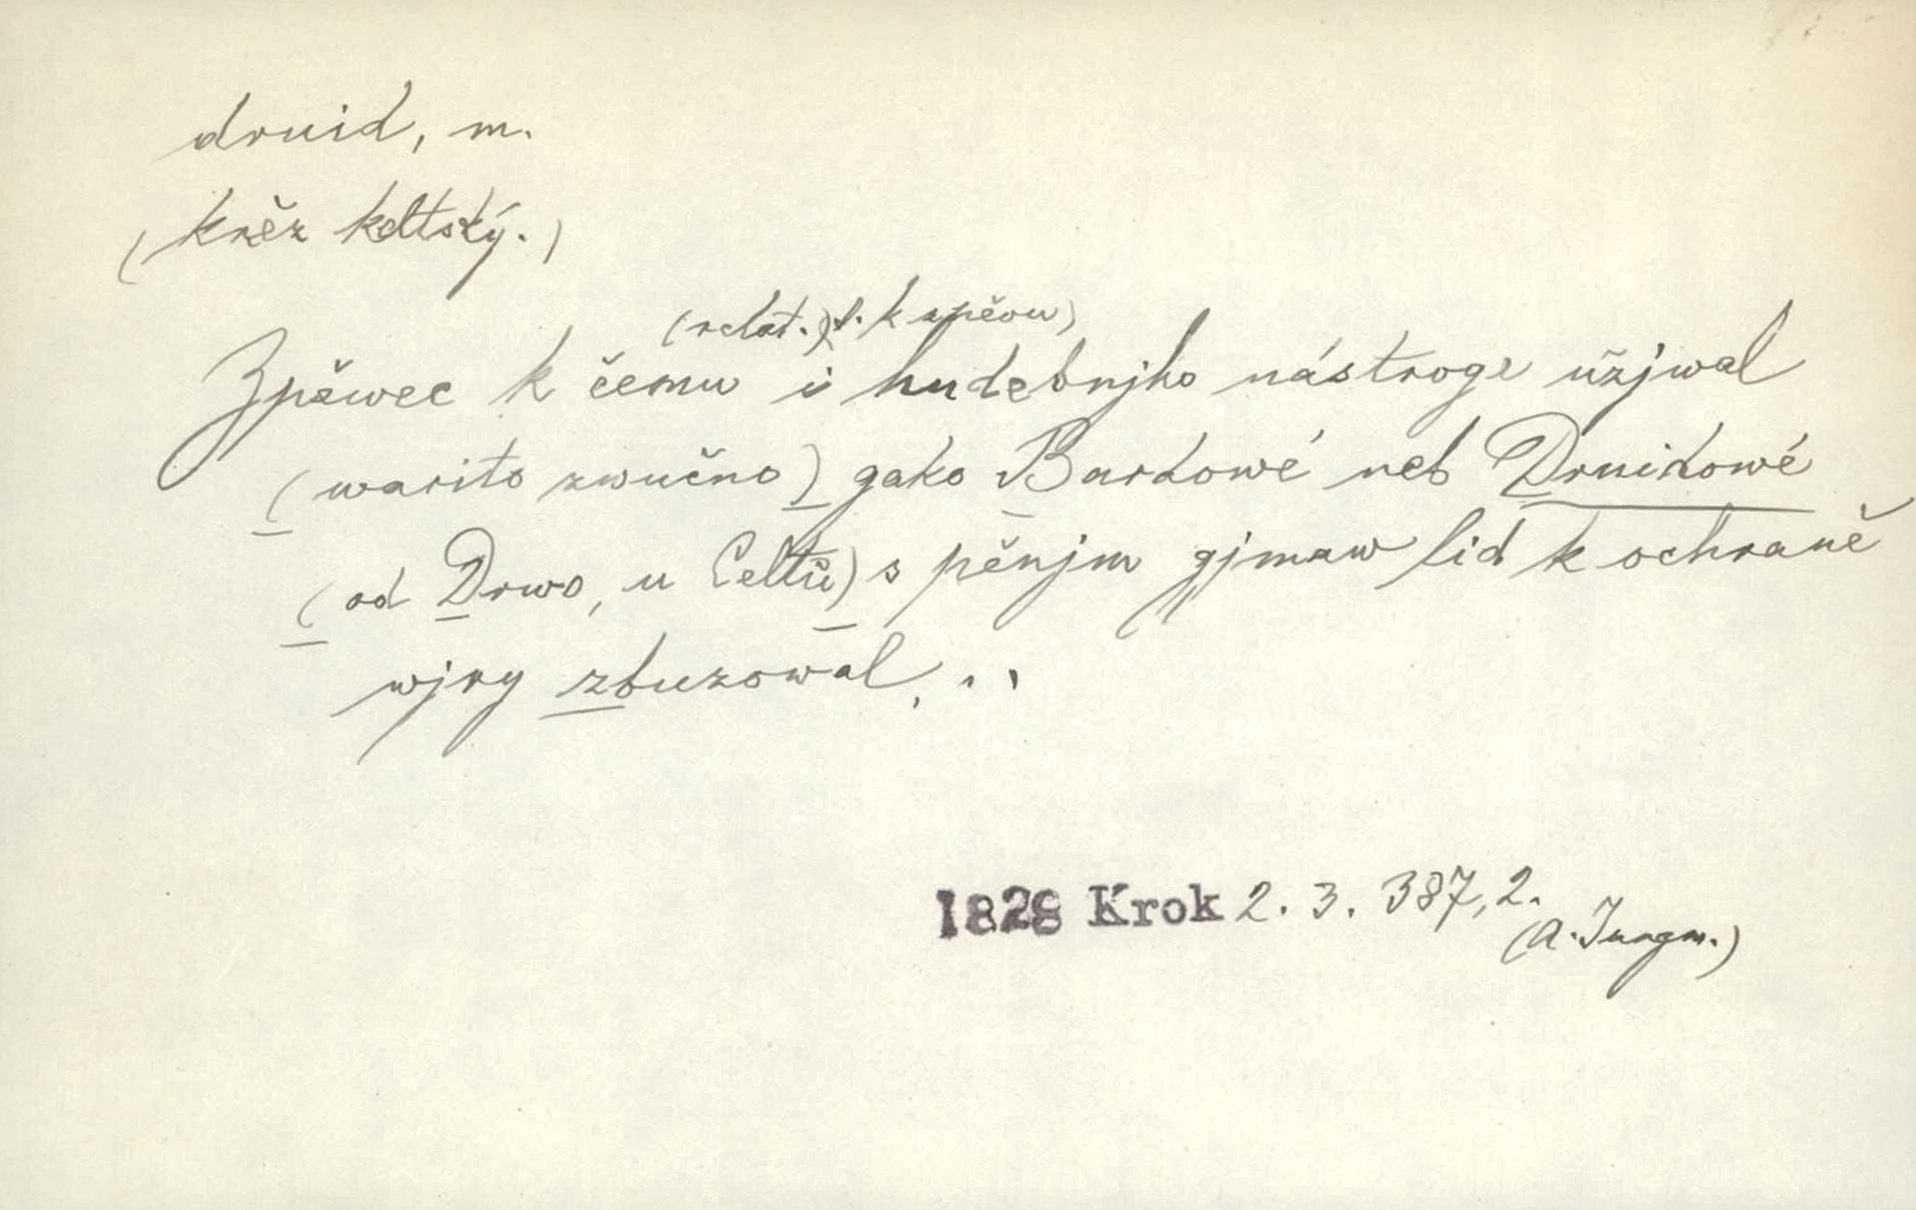 druid, m.
(kněz keltský.)
(relat.) t. k zpěvu)
Zpěwec k čemu i hudebnjho nástroge užjwal
(warito zwučno) gako Bardowé neb Druidowé
(od Drwo, u Celtů) s pěnjm gjmaw lid k ochraně
wjry zbuzowal, ..
1828 Krok 2. 3. 387, 2.
(A. Jungm.)